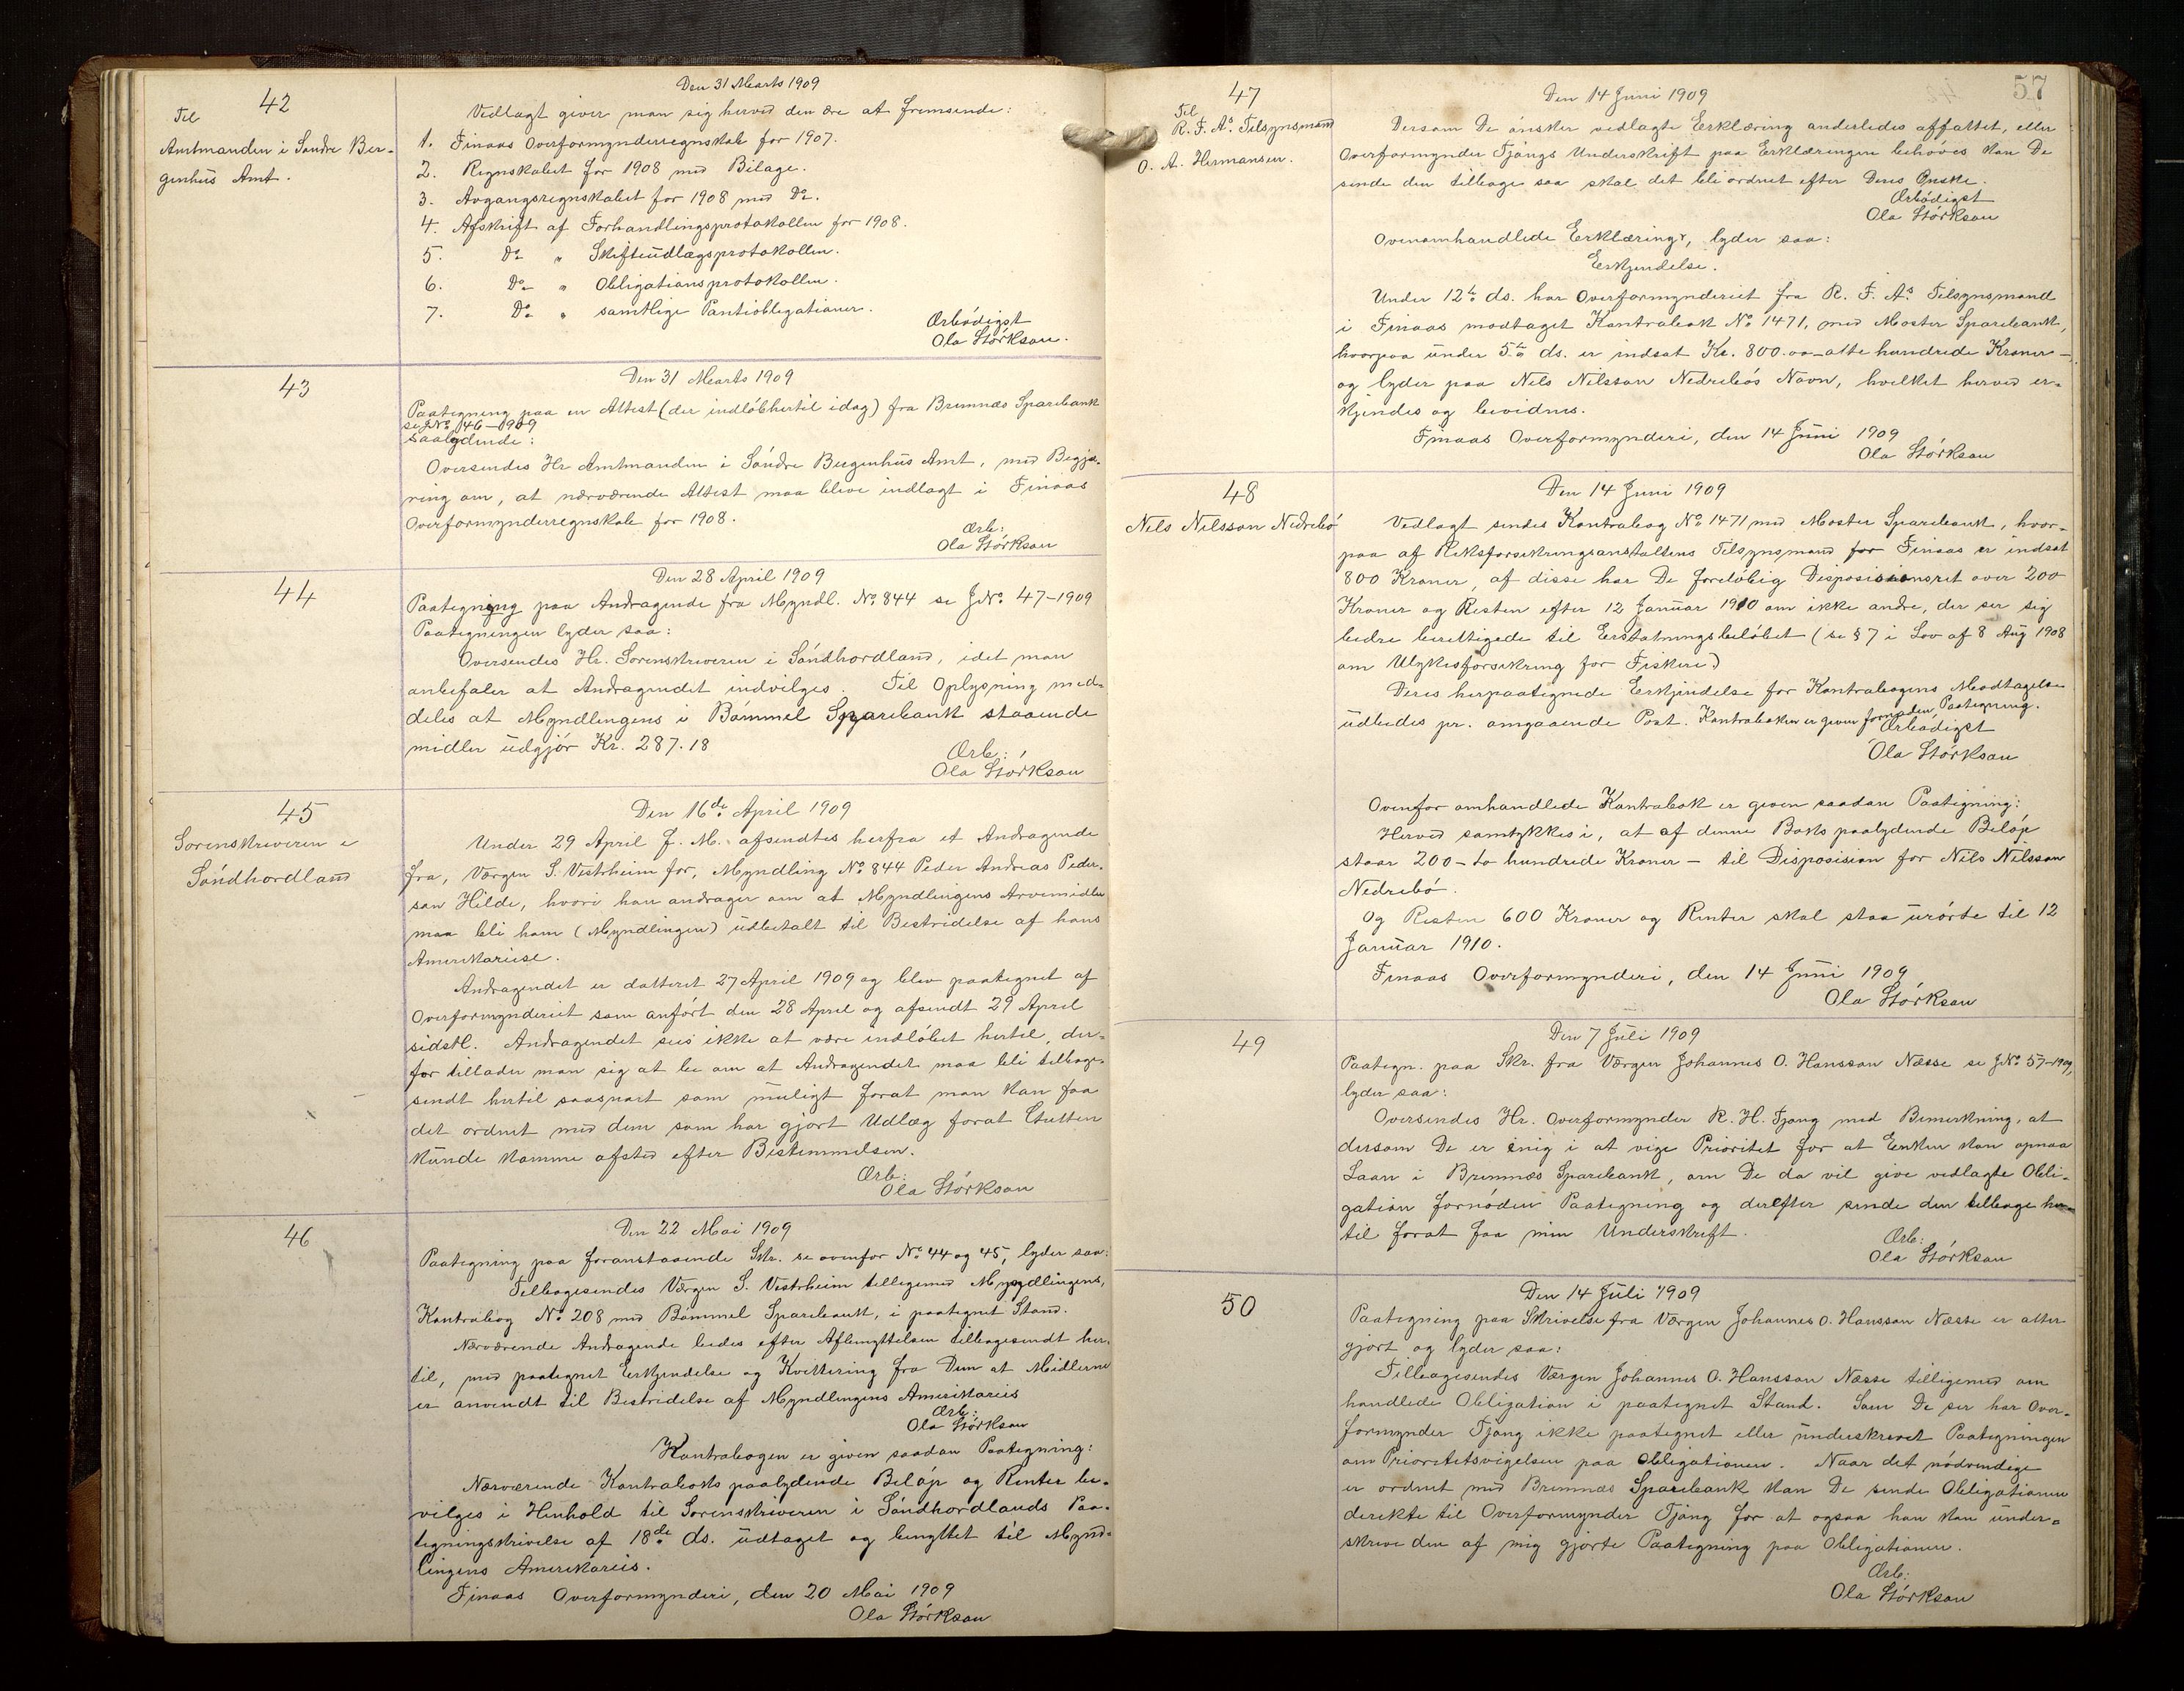 42
Til
Amtmanden i Søndre Ber-
genhus Amt.
Den 31 Marts 1909
Vedlagt giver man sig herved den ære at fremsende:
1. Finaas Overformynderregnskab for 1907.
2. Regnskabet for 1908 med Bilage.
3. Avgangsregnskabet for 1908 med Do.
4. Afskrift af Forhandlingsprotokollen for 1908.
5. Do " Skifteudlægsprotokollen.
6. Do " Obligationsprotokollen.
7. Do " samtlige Panteobligationer.
Ærbödigst
Ola Störkson.
43
Den 31 Marts 1909
Paategning paa en Attest (der indlöb hertil idag) fra Bremnæs Sparebank
se JNo 46-1909
saalydende:
Oversendes Hr Amtmanden i Söndre Bergenhus Amt, med Begjæ-
ring om, at nærværende Attest maa blive indlagt i Finaas
Overformynderregnskab for 1908.
Ærb:
Ola Störkson
44
Den 28 April 1909
Paategning paa Andragende fra Myndl. No 844 se JNo 47-1909
Paategningen lyder saa:
Oversendes Hr. Sorenskriveren i Söndhordland, idet man
anbefaler at Andragendet indvilges. Til Oplysning med-
deles at Myndlingens i Bömmel Sparebank staaende
midler udgjör Kr. 287.18
Ærb:
Ola Störkson
45
Sorenskriveren i
Söndhordland
Den 16de April 1909
Under 29 April F. M. afsendtes herfra et Andragende
fra, Værgen S. Vestrheim for, Myndling No 844 Peder Andreas Peder-
son Hilde, hvori han andrager om at Myndlingens Arvemidler
maa bli ham (Myndlingen) udbetalt til Bestridelse af hans
Amerikareise.
Andragendet er datteret 27 April 1909 og blev paategnet af
Overformynderiet som anfört den 28 April og afsendt 29 April
sidstl. Andragendet sees ikke at være indlöbet hertil, der-
for tillader man sig at be om at Andragendet maa bli tilbage-
sendt hertil saasnart som muligt forat man kan faa
det ordnet med dem som har gjort Udlæg forat Gutten
kunde komme afsted efter Bestemmelsen.
Ærb:
Ola Störkson
46
Den 22 Mai 1909
Paategning paa foranstaaende Skr. se ovenfor No 44 og 45, lyder saa:
Tilbagesendes Værgen S. Vestrheim tilligemed Myndlingens,
Kontrabog No 208 med Bömmel Sparebank, i paategnet Stand.
Nærværende Andragende bedes efter Afbenyttelsen tilbagesendt her-
til, med paategnet Erkjendelse og Kvittering fra Dem at Midlerne
er anvendt til Bestridelse af Myndlingens Amerikareis
Ærb:
Ola Störkson
Kontrabogen er given saadan Paategning:
Nærværende Kontraboks paalydende Belöp og Renter be-
vilges i Henhold til Sorenskriveren i Söndhordlands Paa-
tegningsskrivelse af 18de ds. udtaget og benyttet til Mynd-
lingens Amerikareis.
Finaas Overformynderi, den 20 Mai 1909
Ola Störkson
57
47
Til
R. F. As. Tilsynsmand
O. A. Hermansen.
Den 14 Juni 1909
Dersom De önsker vedlagte Erklæring anderledes affattet, eller
Overformynder Tjongs Underskrift paa Erklæringen behöves kan De
sende den tilbage saa skal det bli ordnet efter Deres Önske.
Ærbödigst
Ola Störkson
Ovenomhandlede Erklæring, lyder saa:
Erkjendelse.
Under 12te ds. har Overformynderiet fra R. F. As. Tilsynsmand
i Finaas modtaget Kontrabok No 1471, med Moster Sparebank,
hvorpaa under 5te ds. er indsat Kr. 800.00 – atte hundrede Kroner –
og lyder paa Nels Nilsson Nedrebös Navn, hvilket herved er-
kjendes og bevidnes.
Finaas Overformynderi, den 14 Juni 1909
Ola Störkson
48
Nels Nilsson Nedrebö
Den 14 Juni 1909
Vedlagt sendes Kontrabog No 1471 med Moster Sparebank, hvor-
paa af Riksforsikringsanstaltens Tilsynsmand for Finaas er indsat
800 Kroner, af disse har De forelöbig Disposisionsret over 200
Kroner og Resten efter 12 Januar 1910 om ikke andre, der ser sig
bedre berettigede til Erstatningsbelöbet (se § 7 i Lov af 8 Aug 1908
om Ulykesforsikring for Fiskere.)
Deres herpaategnede Erkjendelse for Kontrabogens Modtagelse
udbedes pr. omgaaende Post. Kontraboken er given fornöden Paategning.
Ærbödigst
Ola Störkson
Ovenfor omhandlede Kontrabok er given saadan Paategning:
Herved samtykkes i, at af denne Boks paalydende Belöp
staar 200 – to hundrede Kroner – til Disposision for Nils Nilsson
Nedrebö.
Og Resten 600 Kroner og Renter skal staa urörte til 12
Januar 1910.
Finaas Overformynderi, den 14 Juni 1909
Ola Störkson
49
Den 7 Juli 1909
Paategn. paa Skr. fra Værgen Johannes O. Hansson Næsse se JNo 57-1909,
lyder saa:
Oversendes Hr. Overformynder R. H. Tjong med Bemerkning, at
dersom De er enig i at vige Prioritet for at Enken kan opnaa
Laan i Bremnæs Sparebank, om De da vil give vedlagte Obli-
gation fornöden Paategning og derefter sende den tilbage her-
til forat faa min Underskrift.
Ærb:
Ola Störkson
50
Den 14 Juli 1909
Paategning paa Skrivelse fra Værgen Johannes O. Hansson Næsse er atter
gjort og lyder saa:
Tilbagesendes Værgen Johannes O. Hansson Næsse tilligemed om
handlede Obligation i paategnet Stand. Som De ser har Over-
formynder Tjong ikke paategnet eller underskrevet Paategningen
om Prioritetsvigelsen paa Obligationen. Naar det nödvendige
er ordnet med Bremnæs Sparebank kan De sende Obligationen
derekte til Overformynder Tjong for at ogsaa han kan under-
skrive den af mig gjorte Paategning paa Obligationen.
Ærb:
Ola Störkson